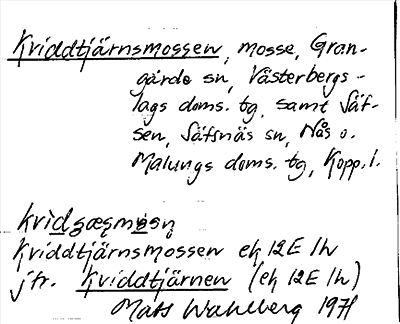 Kviddtjärnsmossen, mosse, Gran-
gärde sn, Västerbergs-
lags doms. tg, samt Säf-
sen, Säfsnäs sn, Nås o.
Malungs doms. tg, Kopp. l.
Kviddtjärnsmossen ek 12E 1h
jfr. Kviddtjärnen (ek 12E 1h)
Mats Wahlberg 1971